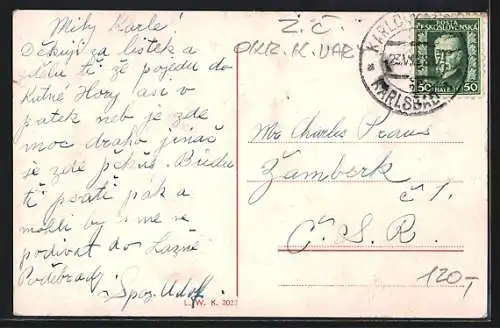 Milý Karle!
Děkuji za lístek a
sdělu ti že pojedu do
Kutné Hory asi v
patek neb je zde
moc draho jinač
je zde pěkně. Budu
ti psáti pak a
mohli by sme se
podívat do Lázně
Poděbrady.
Spoz. Adolf
Z. Č.
OKR. K. VARY
KARLOVY
KARLSBAD
POŠTA
ČESKOSLOVENSKÁ
50 HALÉŘŮ 50
Mr Charles Praus
Žamberk
č 1.
Č. S. R.
120,-
L. W. K. 202